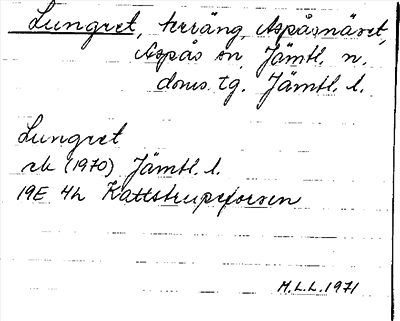 Lungret, terräng, Aspåsnäset,
Aspås sn, Jämtl. n.
doms.tg. Jämtl. l.
Lungret
ek (1970) Jämtl. l.
19E 4h Kattstrupeforsen
M.L.L. 1971